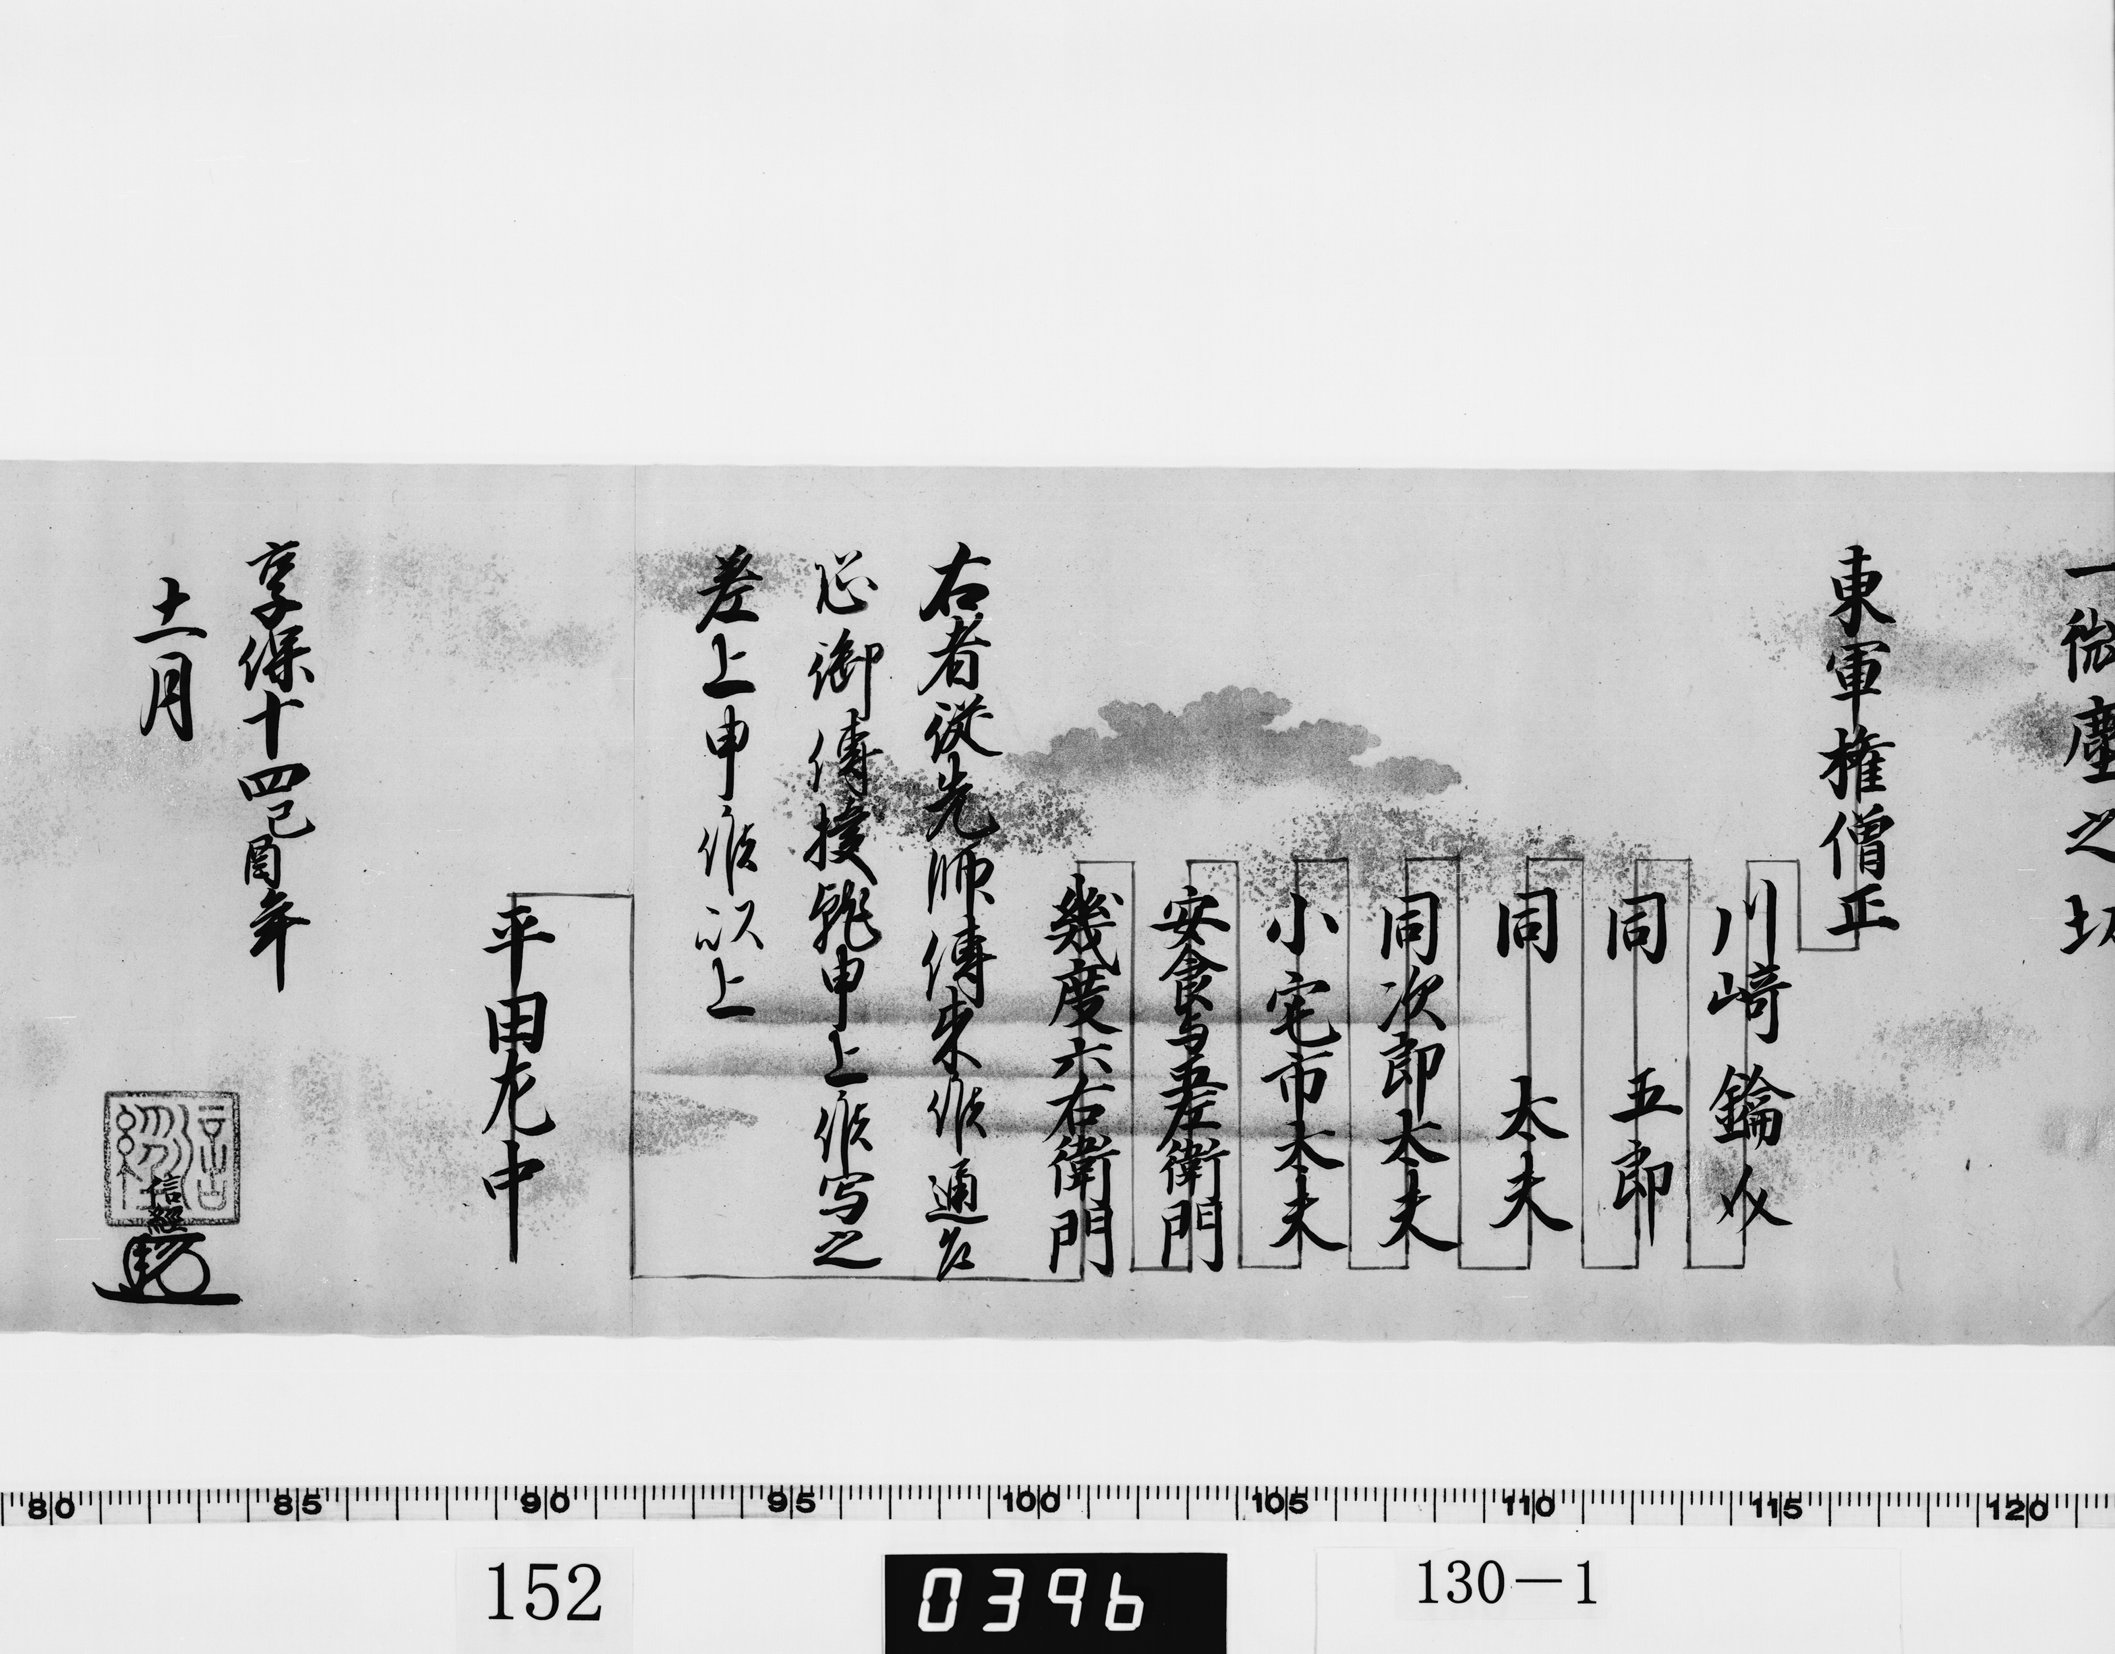 一微塵之坏
東軍権僧正
川﨑鑰ノ助
同 五郎
同 太夫
同次郎太夫
小宅市太夫
安食与五左衛門
幾度六右衛門
右者従先師傳来候通各
必御傳授罷申上候写之
差上申候以上
平田左中
享保十四己酉年
十一月
信經
80 85 90 95 100 105 110 115 120
152
0396
130-1